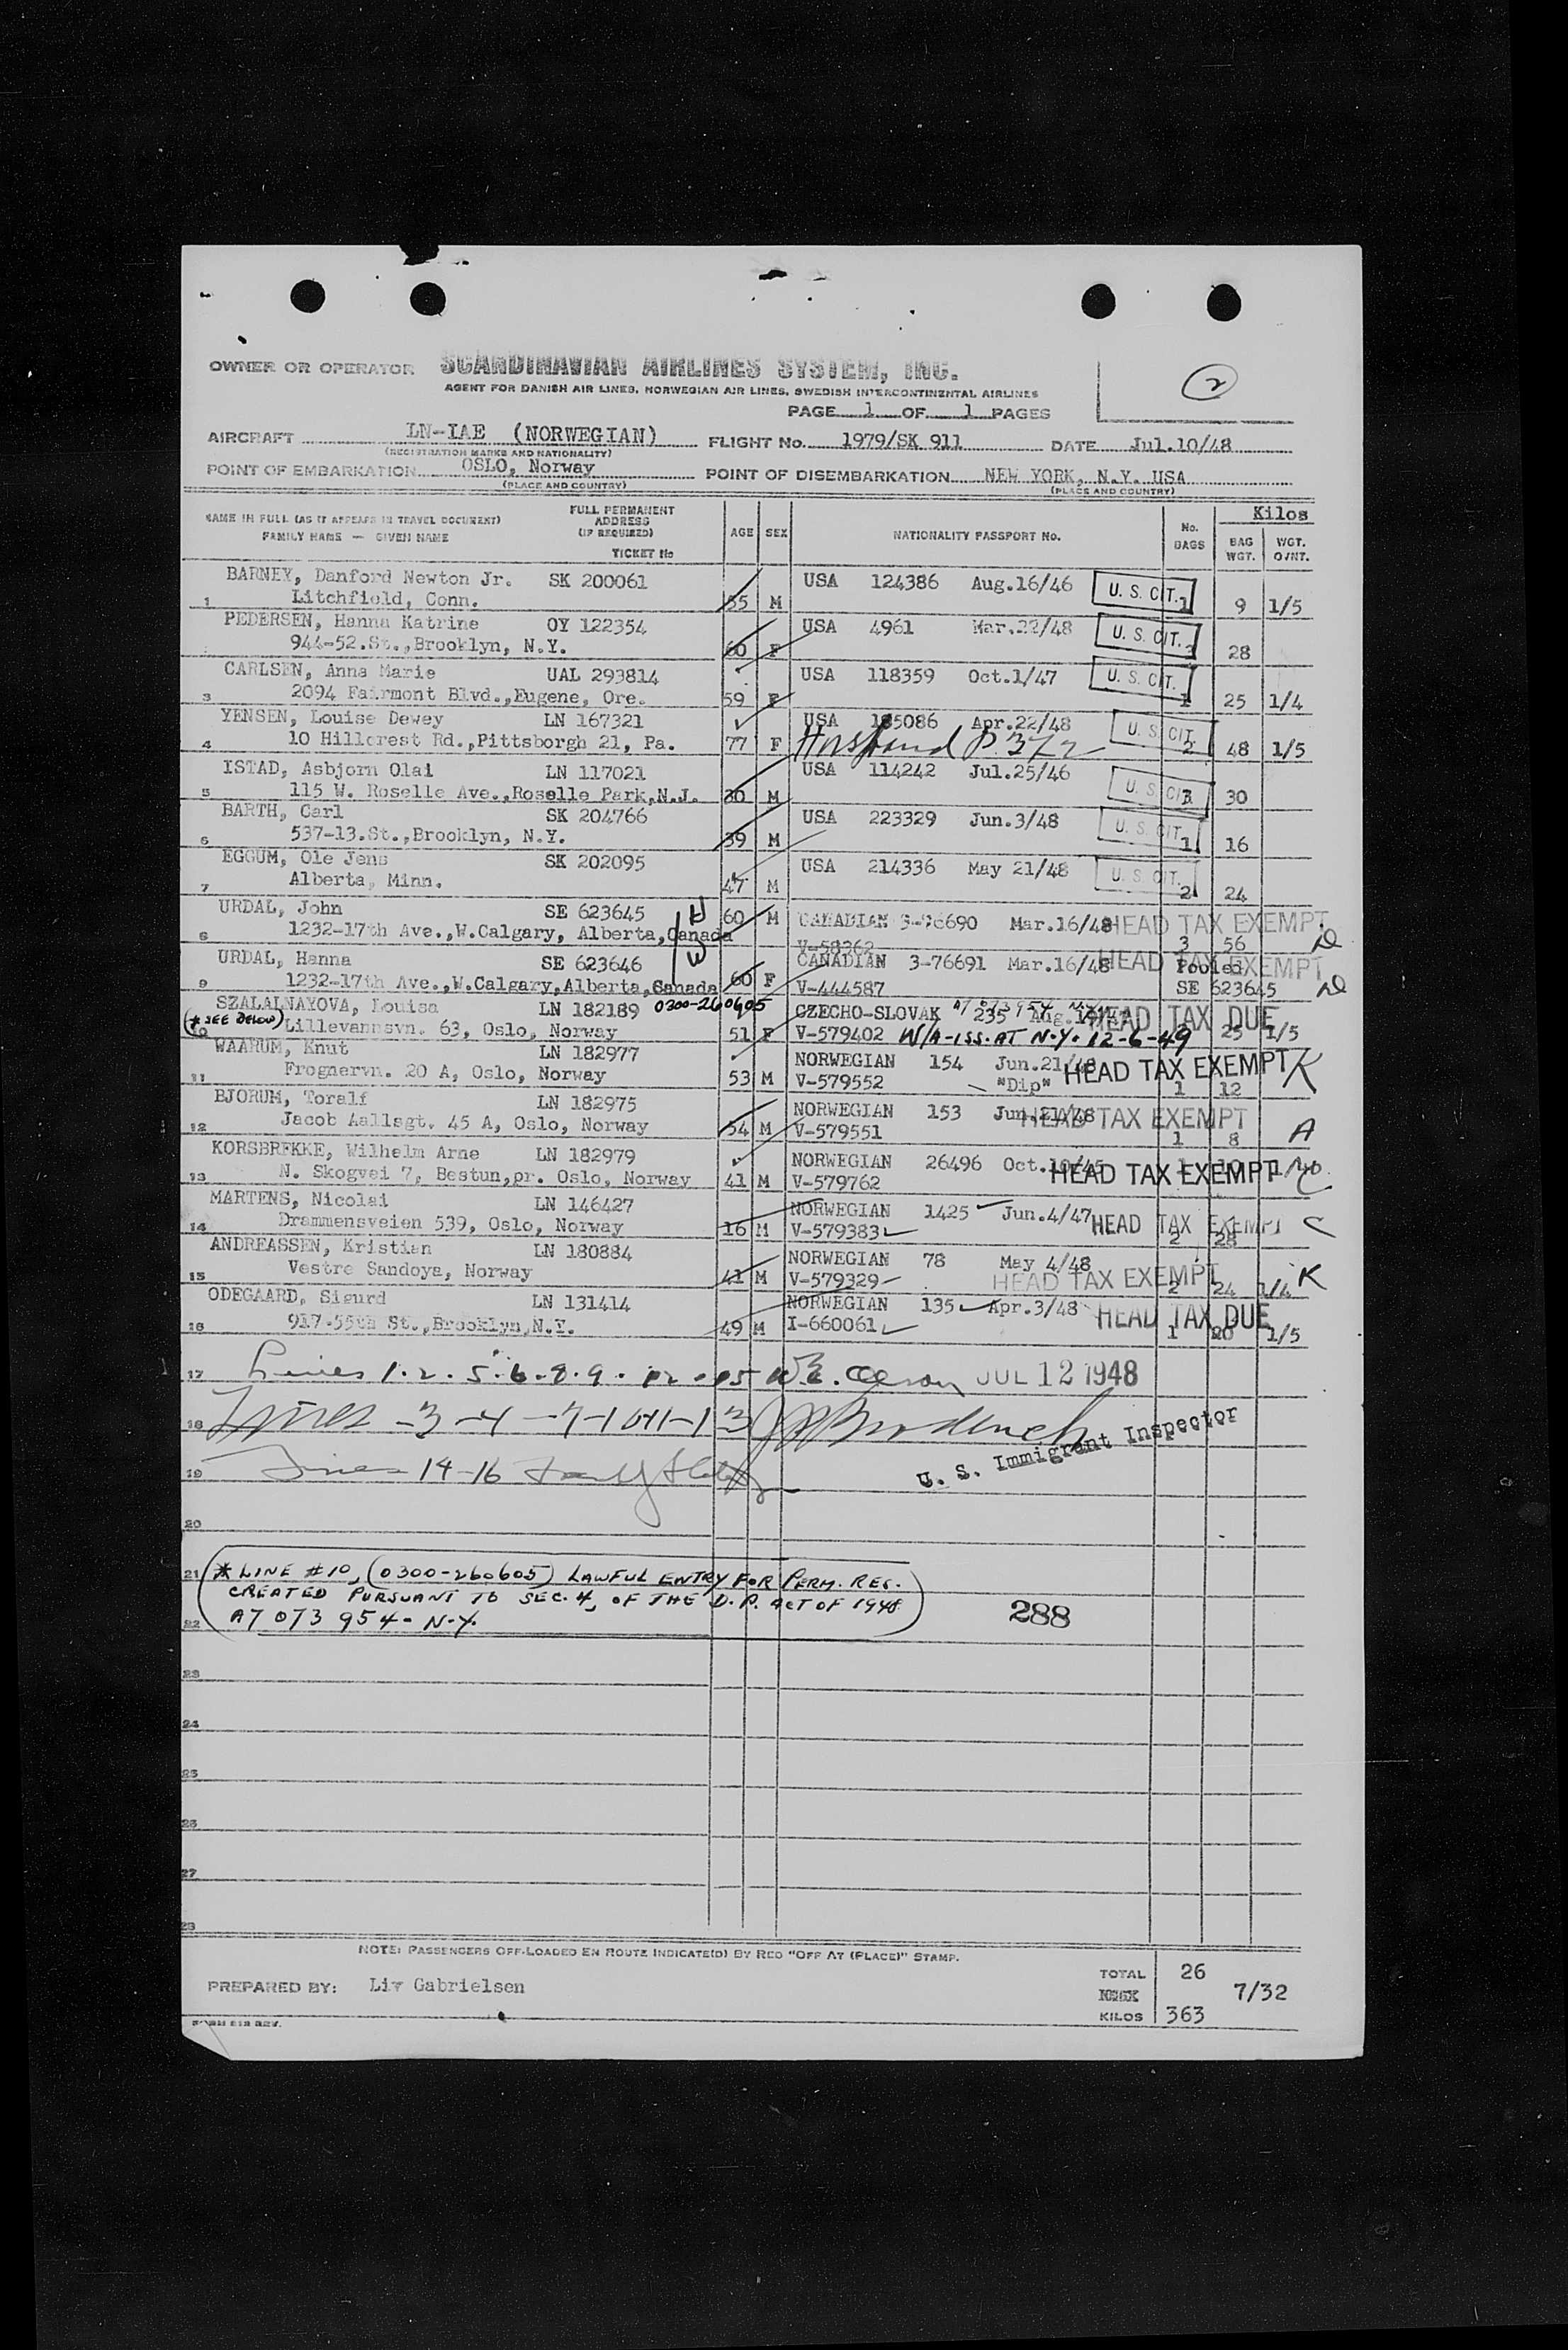 OWNER OR OPERATOR SCANDINAVIAN AIRLINES SYSTEM, INC.
AGENT FOR DANISH AIR LINES, NORWEGIAN AIR LINES, SWEDISH INTERCONTINENTAL AIRLINES
2
PAGE 1 OF 1 PAGES
AIRCRAFT LN-IAE (NORWEGIAN) FLIGHT No. 1979/SK 911 DATE Jul.10/48
(REGISTRATION MARKS AND NATIONALITY)
POINT OF EMBARKATION OSLO, Norway POINT OF DISEMBARKATION NEW YORK, N.Y. USA
(PLACE AND COUNTRY) (PLACE AND COUNTRY)
NAME IN FULL (AS IT APPEARS IN TRAVEL DOCUMENT) FULL PERMANENT ADDRESS (IF REQUIRED) AGE SEX NATIONALITY PASSPORT No. No. BAGS Kilos
FAMILY NAME — GIVEN NAME TICKET No BAG WGT. WGT.
BARNEY, Danford Newton Jr. SK 200061 USA 124386 Aug.16/46 U. S. CIT.
1 Litchfield, Conn. 55 M 1 9 1/5
PEDERSEN, Hanna Katrine OY 122354 USA 4961 Mar.22/48 U. S. CIT.
944-52.St.,Brooklyn, N.Y. 60 F 28
CARLSEN, Anna Marie UAL 293814 USA 118359 Oct.1/47 U. S. CIT.
3 2094 Fairmont Blvd.,Eugene, Ore. 59 F 1 25 1/4
YENSEN, Louise Dewey LN 167321 USA 185086 Apr.22/48 U. S. CIT.
4 10 Hillcrest Rd.,Pittsborgh 21, Pa. 77 F Husband P. 2 48 1/5
ISTAD, Asbjorn Olai LN 117021 USA 114242 Jul.25/46 U. S. CIT.
5 115 W. Roselle Ave.,Roselle Park,N.J. 30 M 3 30
BARTH, Carl SK 204766 USA 223329 Jun.3/48 U. S. CIT.
6 537-13.St.,Brooklyn, N.Y. 39 M 1 16
EGGUM, Ole Jens SK 202095 USA 214336 May 21/48 U. S. CIT.
7 Alberta, Minn. 47 M 2 24
URDAL, John SE 623645 H 60 M CANADIAN 3-76690 Mar.16/48 HEAD TAX EXEMPT
8 1232-17th Ave.,W.Calgary, Alberta,Canada V-58362 3 56
URDAL, Hanna SE 623646 W CANADIAN 3-76691 Mar.16/48 HEAD TAX EXEMPT Pooled
9 1232-17th Ave.,W.Calgary,Alberta,Canada 60 F V-444587 SE 623645
SZALALNAYOVA, Louisa LN 182189 0300-260605 CZECHO-SLOVAK 235 Aug. HEAD TAX DUE
(* SEE BELOW) 10 Lillevannsvn. 63, Oslo, Norway 51 F V-579402 W/A-ISS. AT N.Y. 12-6-49 25 1/5
WAARUM, Knut LN 182977 NORWEGIAN 154 Jun.21/48 HEAD TAX EXEMPT K
11 Frognervn. 20 A, Oslo, Norway 53 M V-579552 "Dip" 1 12
BJORUM, Toralf LN 182975 NORWEGIAN 153 Jun.21/48 HEAD TAX EXEMPT
12 Jacob Aallsgt. 45 A, Oslo, Norway 54 M V-579551 1 8 A
KORSBREKKE, Wilhelm Arne LN 182979 NORWEGIAN 26496 HEAD TAX EXEMPT
13 N. Skogvei 7, Bestun,pr. Oslo, Norway 41 M V-579762
MARTENS, Nicolai LN 146427 NORWEGIAN 1425 Jun.4/47 HEAD TAX EXEMPT C
14 Drammensveien 539, Oslo, Norway 16 M V-579383 2 28
ANDREASSEN, Kristian LN 180884 NORWEGIAN 78 May 4/48 HEAD TAX EXEMPT
15 Vestre Sandoya, Norway 41 M V-579329 2 24 1/4 K
ODEGAARD, Sigurd LN 131414 NORWEGIAN 135 Apr.3/48 HEAD TAX DUE
16 917-55th St.,Brooklyn,N.Y. 49 M I-660061 1 20 1/5
17 Lines 1.2.5.6.8.9.12.15 W.E. JUL 12 1948
18 Lines -3-4-7-10-11-13
U. S. Immigrant Inspector
19 Lines 14-16
20
21 * LINE #10, (0300-260605) LAWFUL ENTRY FOR PERM. RES.
CREATED PURSUANT TO SEC. 4, OF THE D.P. ACT OF 1948
22 A7 073 954 - N.Y. 288
23
24
25
26
27
28
NOTE: PASSENGERS OFF-LOADED EN ROUTE INDICATE(D) BY RED "OFF AT (PLACE)" STAMP.
PREPARED BY: Liv Gabrielsen TOTAL 26 7/32
KILOS 363